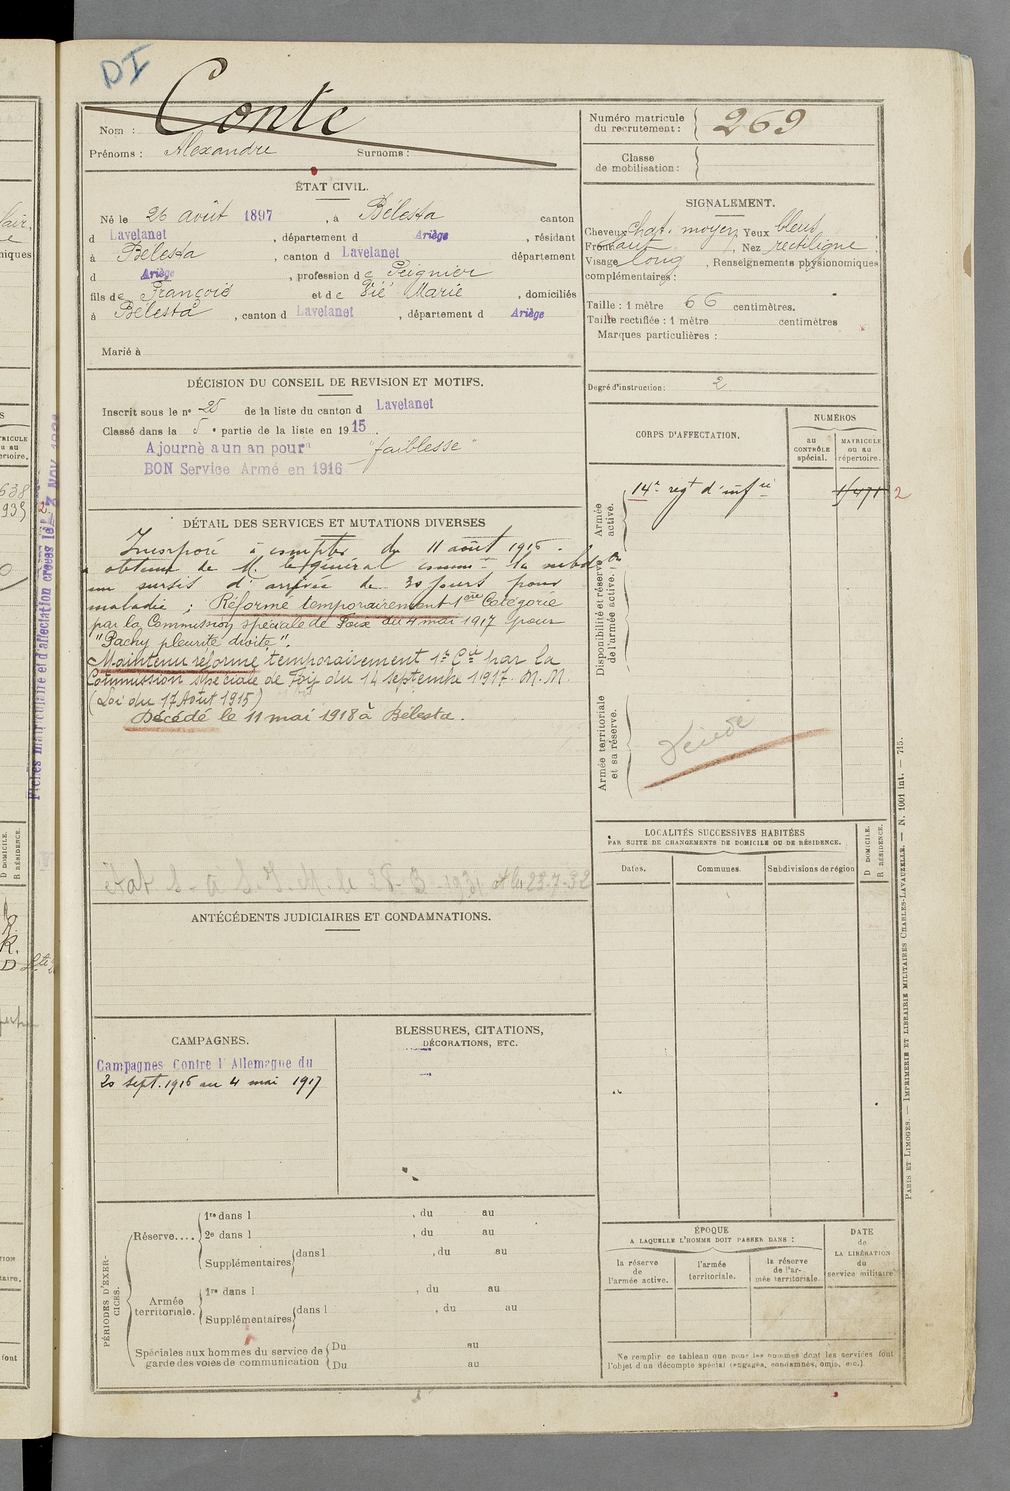 DI
Conte
Nom :
Prénoms : Alexandre Surnoms :
Numéro matricule du recrutement : 269
Classe de mobilisation :
ÉTAT CIVIL.
Né le 26 août 1897, à Bélesta canton
d Lavelanet, département d Ariège, résidant
à Bélesta, canton d Lavelanet département
d Ariège, profession de Peignier
fils de François et de Vié Marie, domiciliés
à Bélesta, canton d Lavelanet, département d Ariège
Marié à
SIGNALEMENT.
Cheveux chat. moyen Yeux bleus
Front haut, Nez rectiligne
Visage long, Renseignements physionomiques
complémentaires :
Taille : 1 mètre 66 centimètres.
Taille rectifiée : 1 mètre centimètres
Marques particulières :
Degré d'instruction : 2
DÉCISION DU CONSEIL DE REVISION ET MOTIFS.
Inscrit sous le n° 25 de la liste du canton d Lavelanet
Classé dans la 5e partie de la liste en 1915.
Ajourné a un an pour "faiblesse"
BON Service Armé en 1916
CORPS D'AFFECTATION.
NUMÉROS
au CONTRÔLE spécial.
MATRICULE ou au répertoire.
Armée active.
14e regt d'infie 2
Disponibilité et réserve de l'armée active.
Armée territoriale et sa réserve.
DÉTAIL DES SERVICES ET MUTATIONS DIVERSES
Incorporé à compter du 11 août 1916.
a obtenu de M. le général comm. la subdon
un sursis d'arrivée de 30 jours pour
maladie ; Réformé temporairement 1ère Catégorie
par la Commission spéciale de Foix du 4 mai 1917 pour
"Pachy pleurite droite".
Maintenu réformé temporairement 1e Cie par la
Commission spéciale de Foix du 14 septembre 1917. M. M.
(Loi du 17 Août 1915)
Décédé le 11 mai 1918 à Bélesta.
LOCALITÉS SUCCESSIVES HABITÉES
PAR SUITE DE CHANGEMENTS DE DOMICILE OU DE RÉSIDENCE.
Dates. Communes. Subdivisions de région
D DOMICILE.
R RÉSIDENCE.
ANTÉCÉDENTS JUDICIAIRES ET CONDAMNATIONS.
CAMPAGNES.
Campagnes Contre l'Allemagne du
20 sept. 1916 au 4 mai 1917
BLESSURES, CITATIONS,
DÉCORATIONS, ETC.
PÉRIODES D'EXERCICES.
Réserve....
1re dans l , du au
2e dans l , du au
Supplémentaires dans l , du au
Armée territoriale.
1re dans l , du au
Supplémentaires dans l , du au
Spéciales aux hommes du service de garde des voies de communication
Du au
Du au
ÉPOQUE
A LAQUELLE L'HOMME DOIT PASSER DANS :
la réserve de l'armée active.
l'armée territoriale.
la réserve de l'armée territoriale.
DATE de LA LIBÉRATION du service militaire
Ne remplir ce tableau que pour les hommes dont les services font
l'objet d'un décompte spécial (engagés, condamnés, omis, etc.)
PARIS ET LIMOGES. — IMPRIMERIE ET LIBRAIRIE MILITAIRES CHARLES-LAVAUZELLE. — N. 1001 int. — 715.